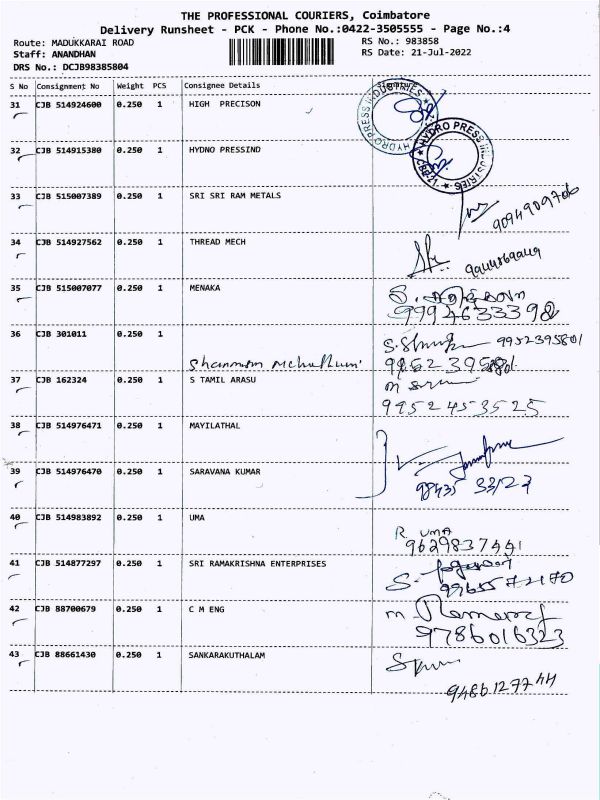 THE PROFESSIONAL COURIERS, Coimbatore
Delivery Runsheet - PCK - Phone No.:0422-3505555 - Page No.:4
Route: MADUKKARAI ROAD RS No.: 983858
Staff: ANANDHAN RS Date: 21-Jul-2022
DRS No.: DCJB98385804
S No Consignment No Weight PCS Consignee Details Signature
31 CJB 514924600 0.250 1 HIGH PRECISON
HYDRO PRESS INDUSTRIES
32 CJB 514915380 0.250 1 HYDNO PRESSIND
HYDRO PRESS INDUSTRIES
33 CJB 515007389 0.250 1 SRI SRI RAM METALS
9094909706
34 CJB 514927562 0.250 1 THREAD MECH
35 CJB 515007077 0.250 1 MENAKA
9994633398
36 CJB 301011 0.250 1
9952395801
37 CJB 162324 0.250 1 S TAMIL ARASU
9952453525
38 CJB 514976471 0.250 1 MAYILATHAL
39 CJB 514976470 0.250 1 SARAVANA KUMAR
98435 33127
40 CJB 514983892 0.250 1 UMA
R UMA
9629837441
41 CJB 514877297 0.250 1 SRI RAMAKRISHNA ENTERPRISES
42 CJB 88700679 0.250 1 C M ENG
9786016323
43 CJB 88661430 0.250 1 SANKARAKUTHALAM
9486127744